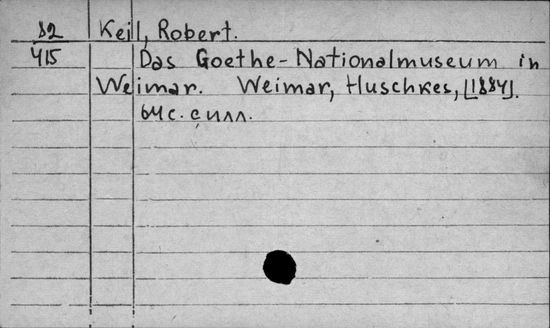 82 Keil, Robert.
415 Das Goethe-Nationalmuseum in
Weimar. Weimar, Huschkes, [1884].
64 с. с илл.